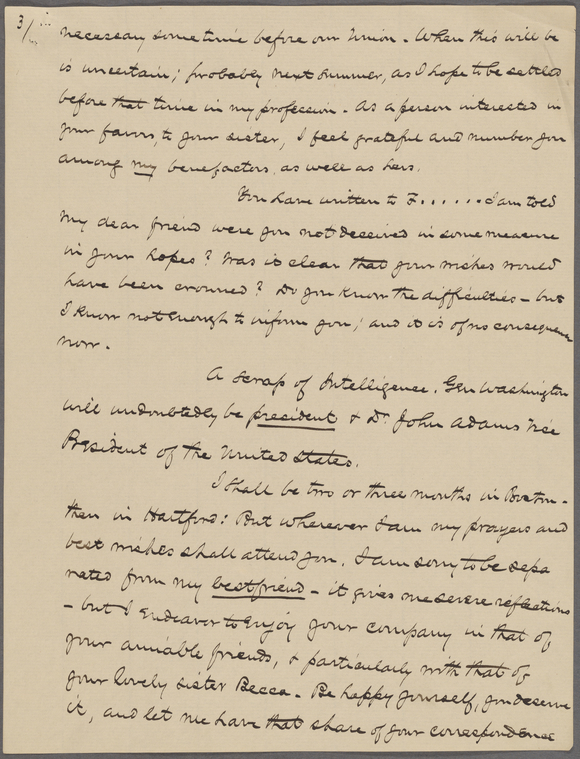 3/
necessary some time before our Union. When this will be
is uncertain; probably next summer, as I hope to be settled
before that time in my profession. As a person interested in
your favors, to your sister, I feel grateful and number you
among my benefactors, as well as hers.
You have written to F...... I am told
My dear friend were you not deceived in some measure
in your hopes? Was it clear that your wishes would
have been crowned? Do you know the difficulties - but
I know not enough to inform you; and it is of no consequence
now.
A scrap of Intelligence. Gen Washington
will undoubtedly be president & Dr. John Adams Vice
President of the United States.
I shall be two or three months in Boston -
then in Hartford: But wherever I am my prayers and
best wishes shall attend you. I am sorry to be sepa
rated from my best friend - it gives me severe reflections
- but I endeavor to enjoy your company in that of
your amiable friends, & particularly with that of
your lovely sister Becca. Be happy yourself, you deserve
it, and let me have that share of your correspondence